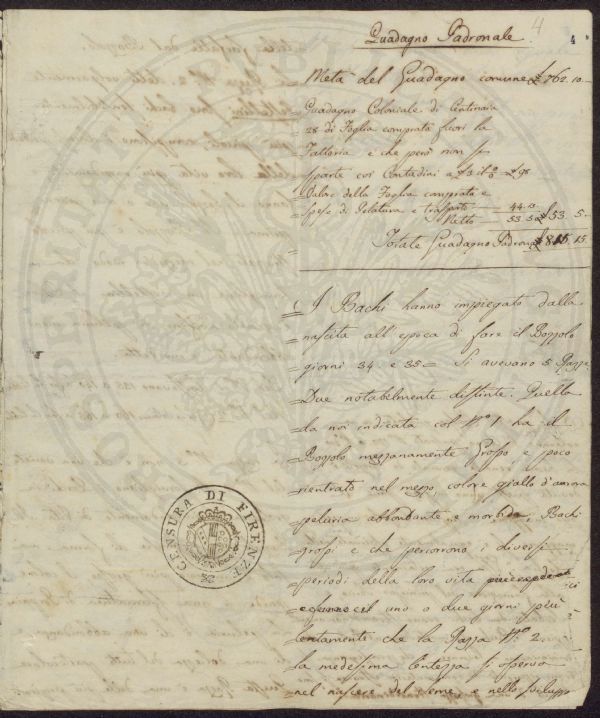 Guadagno Padronale
4
4
Metà del Guadagno comune £ 762. 10.
Guadagno Coloniale di Centinaia
28 di Foglia comprata fuori la
Fattoria e che però non si
sparte coi Contadini a £ 3 il % £ 98
Valore della Foglia comprata e
Spese di Pelatura e trasporto 44. 15
Netto 53. 5 £ 53. 5.
Totale Guadagno Padronale £ 815. 15.
I Bachi hanno impiegato dalla
nascita all'epoca di fare il Bozzolo
giorni 34. e 35 = Si avevano 5 Razze
Due notabilmente distinte. Quella
da noi indicata col N.o 1 ha il
Bozzolo mezzanamente Grosso e poco
rientrato nel mezzo, colore giallo d'aurora
pelaria abbondante, e morbida, Bachi
grossi e che percorrono i diversi
periodi della loro vita
uno o due giorni più
lentamente che la Razza N.o 2.
la medesima lentezza si osserva
nel nascere del seme, e nello sviluppo
CENSURA DI FIRENZE